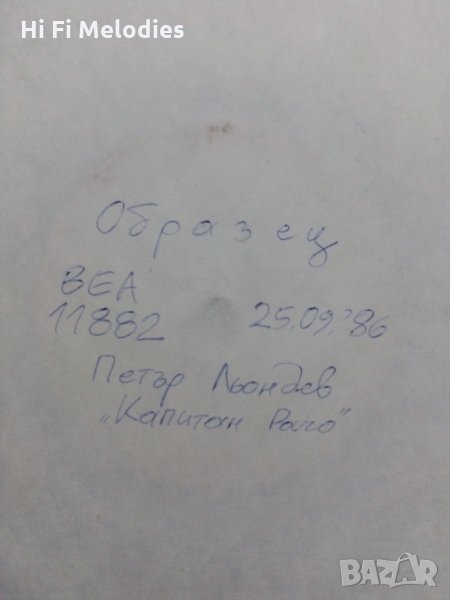 Hi Fi Melodies
Образец
ВЕА
11882 25.09.'86
Петър Льондев
„Капитан Рачо"
BAZAR